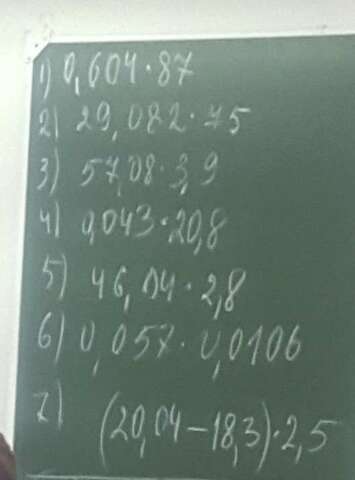 1) 0,604·87
2) 29,082·75
3) 57,08·3,9
4) 0,043·20,8
5) 46,04·2,8
6) 0,057·0,0106
7) (20,04-18,3)·2,5